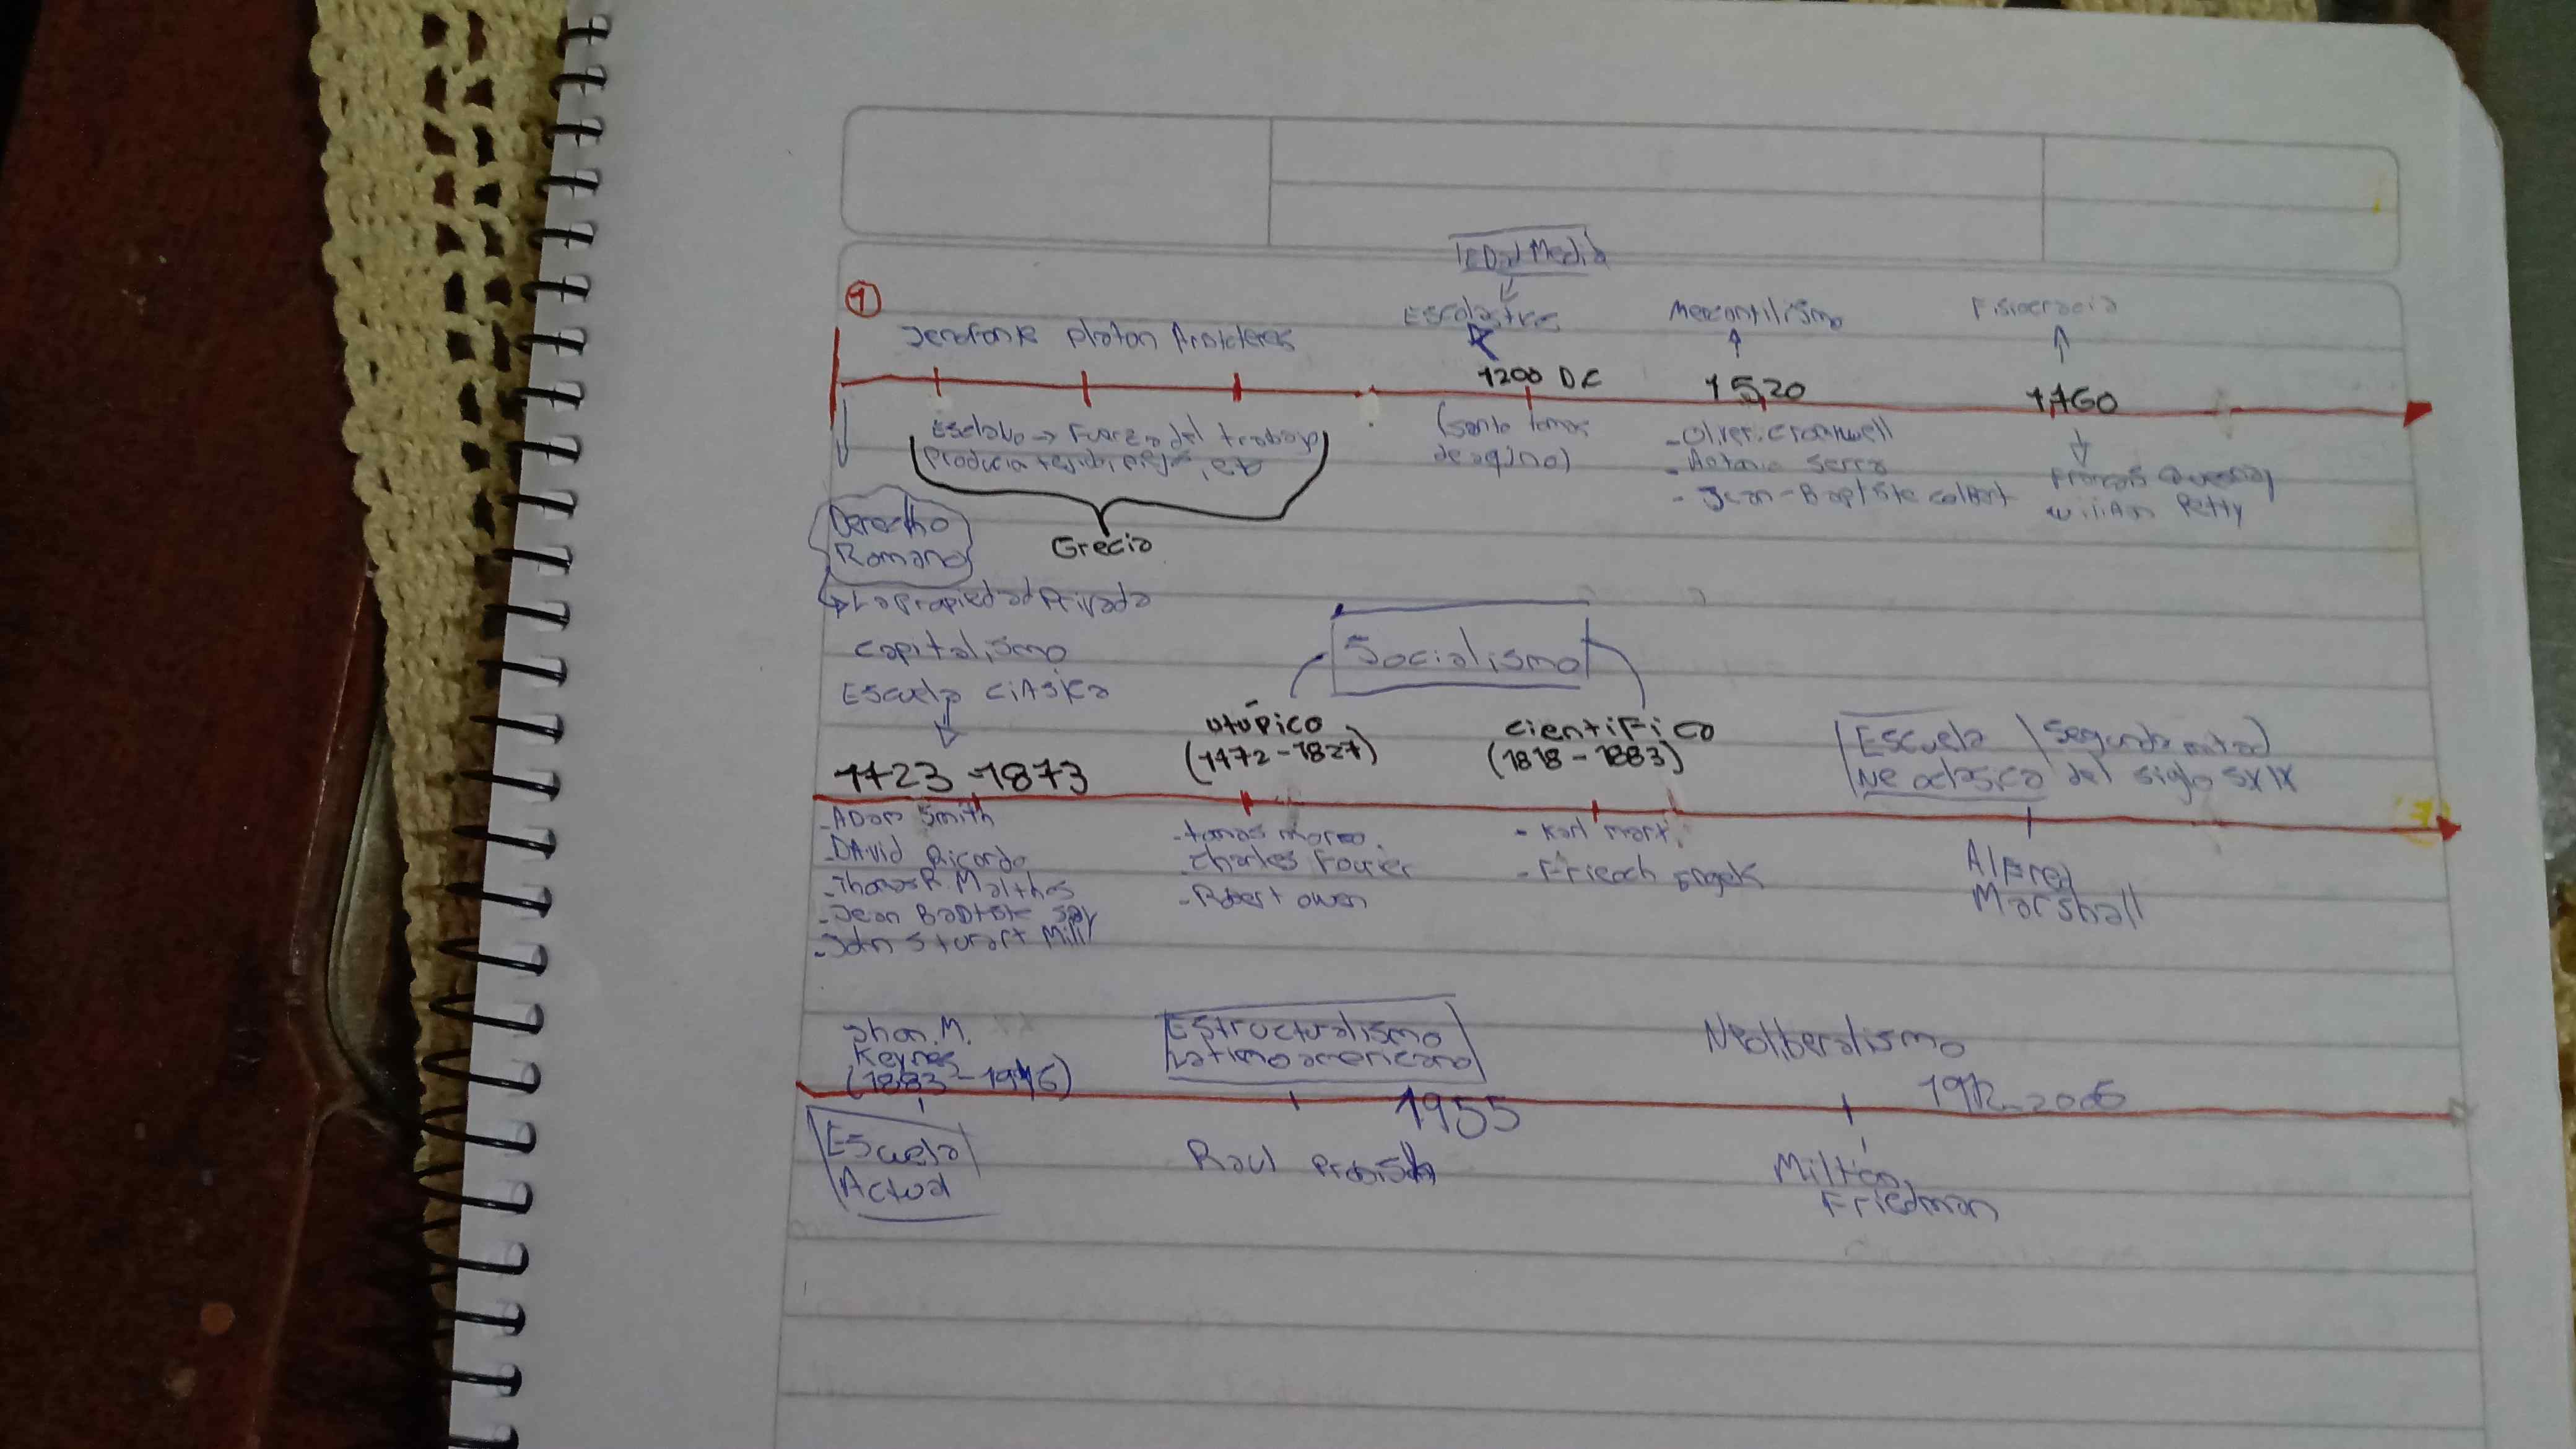 1
Edad Media
Escolastica Mercantilismo Fisiocracia
Jenofonte Platon Aristoteles
1200 DC 1520 1760
Esclavo → Fuerza del trabajo
producia tejido, etc
(santo tomas
de aquino)
- Oliver. cromwell
- Antonio Serra
- Jean-Baptiste colbert
François Quesnay
william Petty
Derecho
Romano
Grecia
↳ La propiedad Privada
capitalismo
Escuela clAsica
Socialismo
utópico
(1772-1827)
cientiFico
(1818-1883)
Escuela
Neoclasica
Segunda mitad
del siglo sXIX
1723-1873
- ADam Smith
- DAvid Ricardo
- Thomas R. Malthus
- Jean Baptiste say
- John Sturart Mill
- tomas moro
- charles Fourier
- Robert owen
- Karl marx
- Friech Engels
AlFred
Marshall
Jhon. M.
Keynes
(1883-1946)
Estructuralismo
Latinoamericano
Neoliberalismo
1912-2006
1955
Escuela
Actual
Raul Prebisch
Milton
Friedman